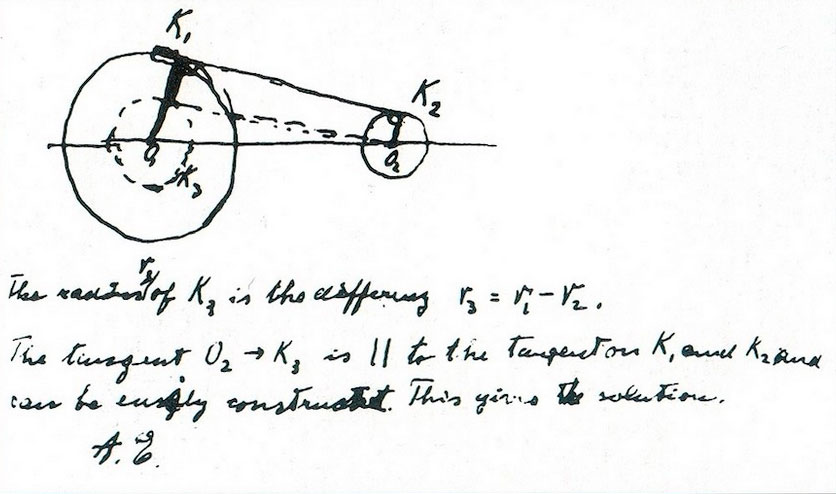 K₁
K₂
O₁
O₂
K₃
r₃
The radius of K₃ is the differenz r₃ = r₁ - r₂.
The tangent O₂ → K₃ is || to the tangent on K₁ and K₂ and
can be easily construct. This gives the solution.
A. E.